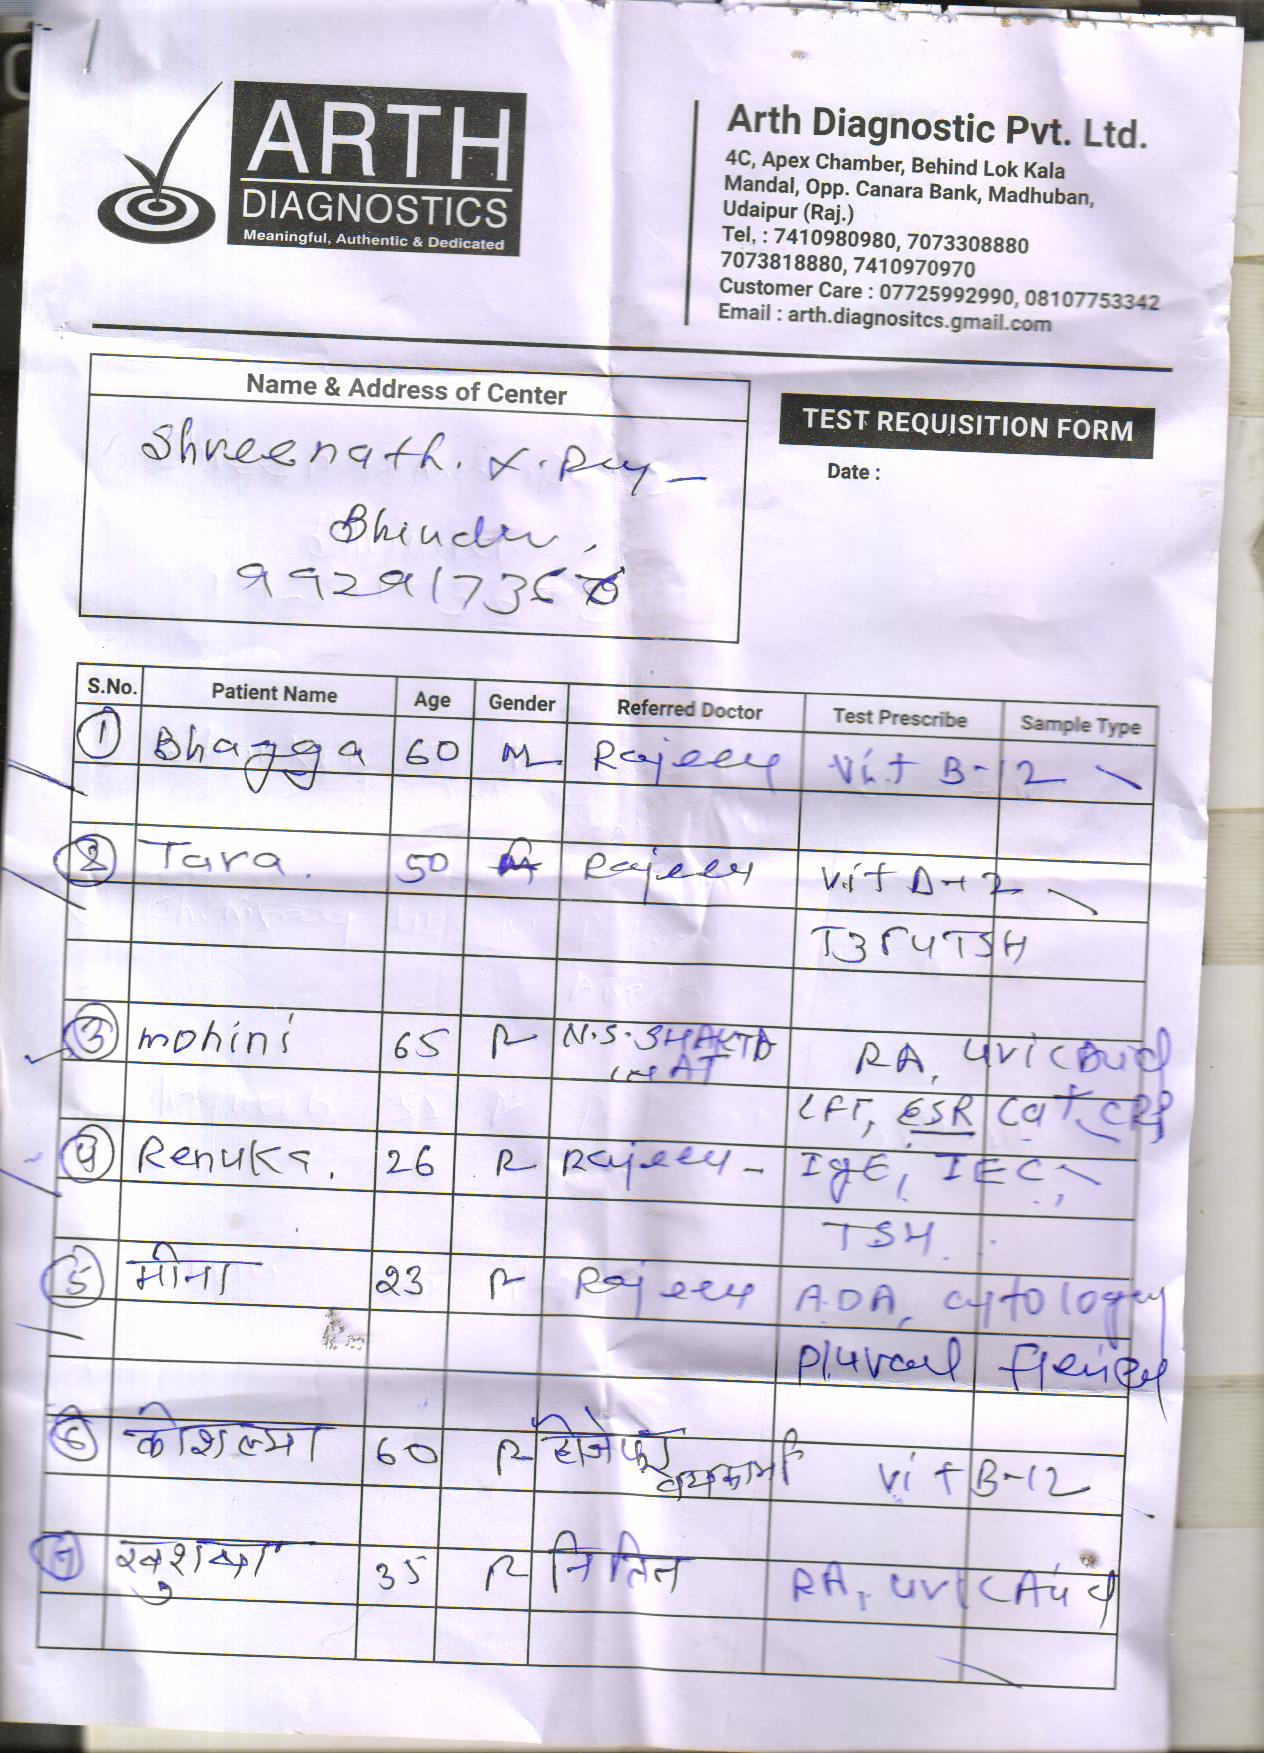 ARTH
DIAGNOSTICS
Meaningful, Authentic & Dedicated
Arth Diagnostic Pvt. Ltd.
4C, Apex Chamber, Behind Lok Kala
Mandal, Opp. Canara Bank, Madhuban,
Udaipur (Raj.)
Tel. : 7410980980, 7073308880
7073818880, 7410970970
Customer Care : 07725992990, 08107753342
Email : arth.diagnositcs.gmail.com
Name & Address of Center
Shreenath. X-Ray -
Bhinder,
TEST REQUISITION FORM
Date :
S.No. Patient Name Age Gender Referred Doctor Test Prescribe Sample Type
1 Bhagga 60 M Rajeev Vit B-12
2 Tara. 50 Rajeev Vit
T3 T4 TSH
3 mohini 65 F N.S. RA,
LFT, ESR
4 Renuka. 26 F Rajeev - IgE, IEC,
TSH.
5 मीना 23 F Rajeev ADA, cytology
6 कोशल्या 60 F Vit B-12
7 35 F नितिन RA,